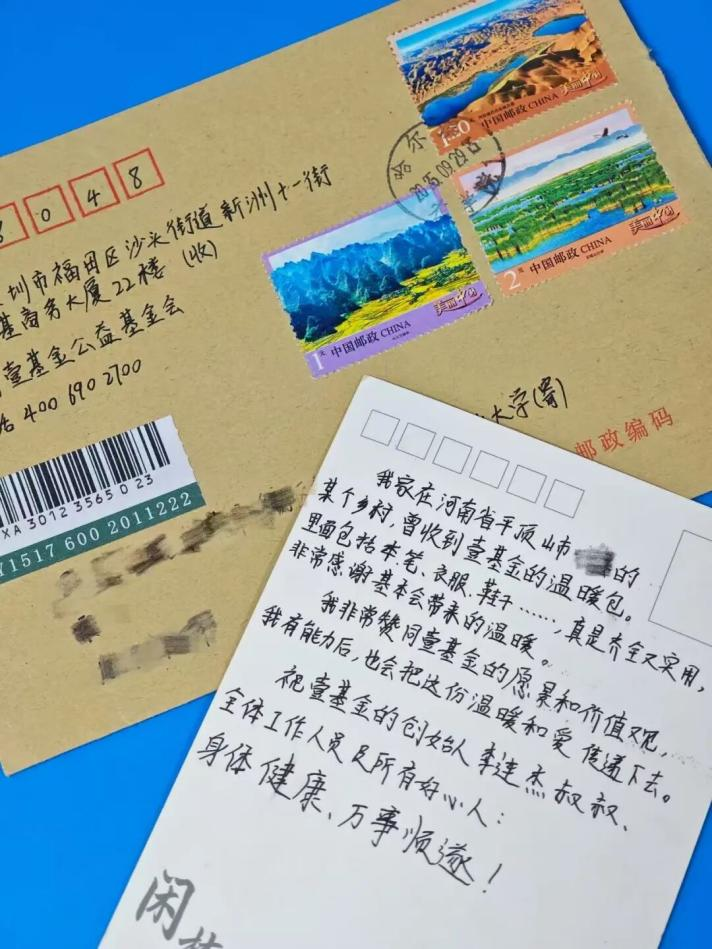 8048
圳市福田区沙头街道新洲十一街
基商务大厦22楼 (收)
壹基金公益基金会
话 400 690 2700
XA 3012 3565 0 23
1517 600 2011222
1.50 中国邮政 CHINA
美丽中国
哈尔
2025.09.29.15
2元 中国邮政 CHINA
美丽中国
1元 中国邮政 CHINA
美丽中国
大学(寄)
邮政编码
我家在河南省平顶山市 的
某个乡村,曾收到壹基金的温暖包。
里面包括本笔、衣服、鞋子……,真是齐全又实用,
非常感谢基本会带来的温暖。
我非常赞同壹基金的愿景和价值观,
我有能力后,也会把这份温暖和爱传递下去。
祝壹基金的创始人李连杰叔叔、
全体工作人员及所有好心人:
身体健康、万事顺遂!
闲